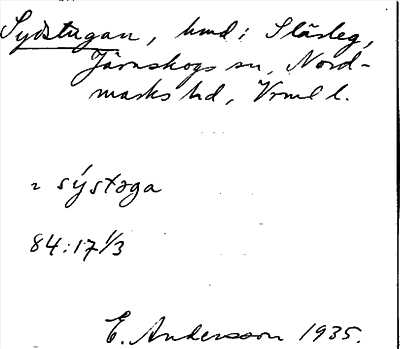 Sydstugan, hmd i Slärleg,
Järnskogs sn, Nord-
marks hd, Vrml l.
2 sýstoga
84:17 1/3
E. Andersson 1935.